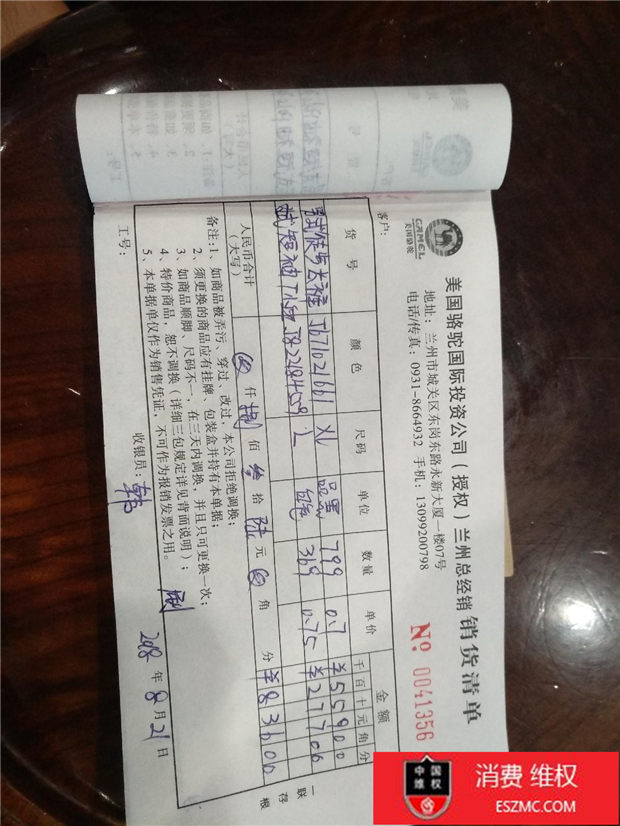 CAMEL
美国骆驼
美国骆驼国际投资公司(授权)兰州总经销 销货清单
地址:兰州市城关区东岗东路永新大厦一楼07号
电话/传真:0931-8664932 手机:13099200798
№ 0041356
客户:
货号 颜色 尺码 单位 数量 单价 金额
千百十元角分
徒步长裤 J671021661 XL 799 0.7 ¥55900
短袖T恤 L 369 0.75 ¥27700
人民币合计
(大写)
仟 捌 佰 叁 拾 陆 元 角 分 ¥83600
备注:1、如商品被弄污、穿过、改过,本公司拒绝调换;
2、须更换的商品应有挂牌、包装盒并持有本单据;
3、如商品顺脚、尺码不一,在三天内调换,并且只可更换一次;
4、特价商品,恕不调换(详细三包规定详见背面说明);
5、本单据单仅作为销售凭证,不可作为报销发票之用。
工号: 收银员: 2018年8月21日
一联存根
中国
维权
消费 维权
ESZMC.COM